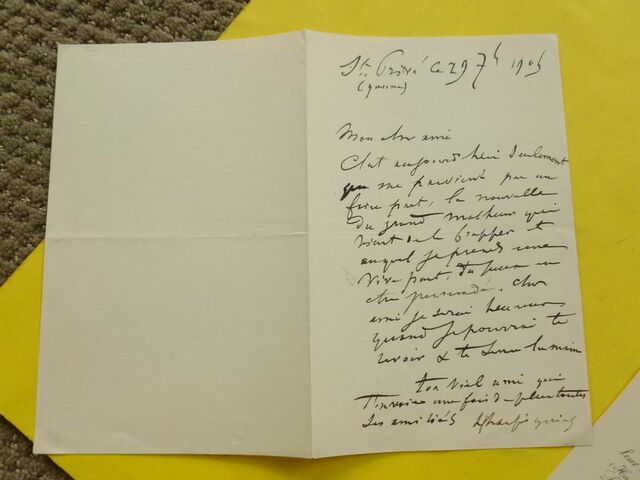 St Privé ce 29 7b 1905
(yonne)
Mon cher ami
C'est aujourd'hui seulement
que me parvient par un
faire part, la nouvelle
du grand malheur qui
vient de te frapper et
auquel je prends une
vive part, tu peux en
être persuadé. Cher
ami je serai heureux
quand je pourrai te
revoir & te serrer la main
ton vieil ami qui
t'envoie une fois de plus toutes
ses amitiés